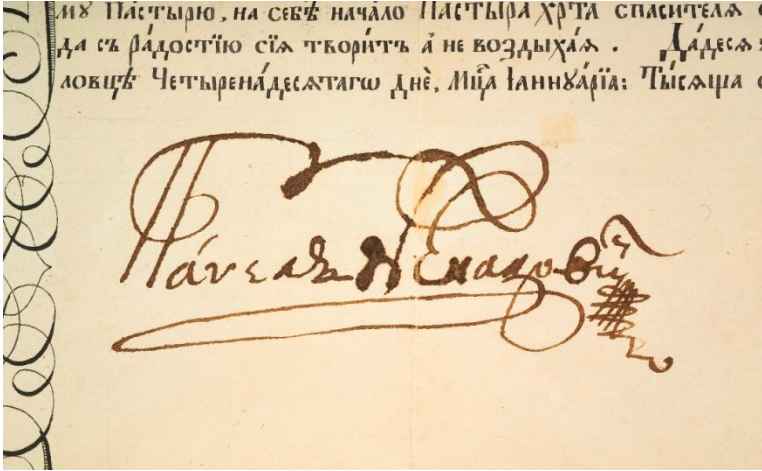 му Пастырю, на себѣ нача́ло Пастырѧ Хрⷭ҇та спасителѧ
да съ ра́достїю сїѧ̀ твори́тъ а҆ не воздыха́ѧ. Да́десѧ
ловцѣ̀ Четырена́десѧтагѡ днѐ, Мц҃а Іаннꙋа́рїа: Ты́сѧща
Па́ѵелъ Ненадовиⷱ҇